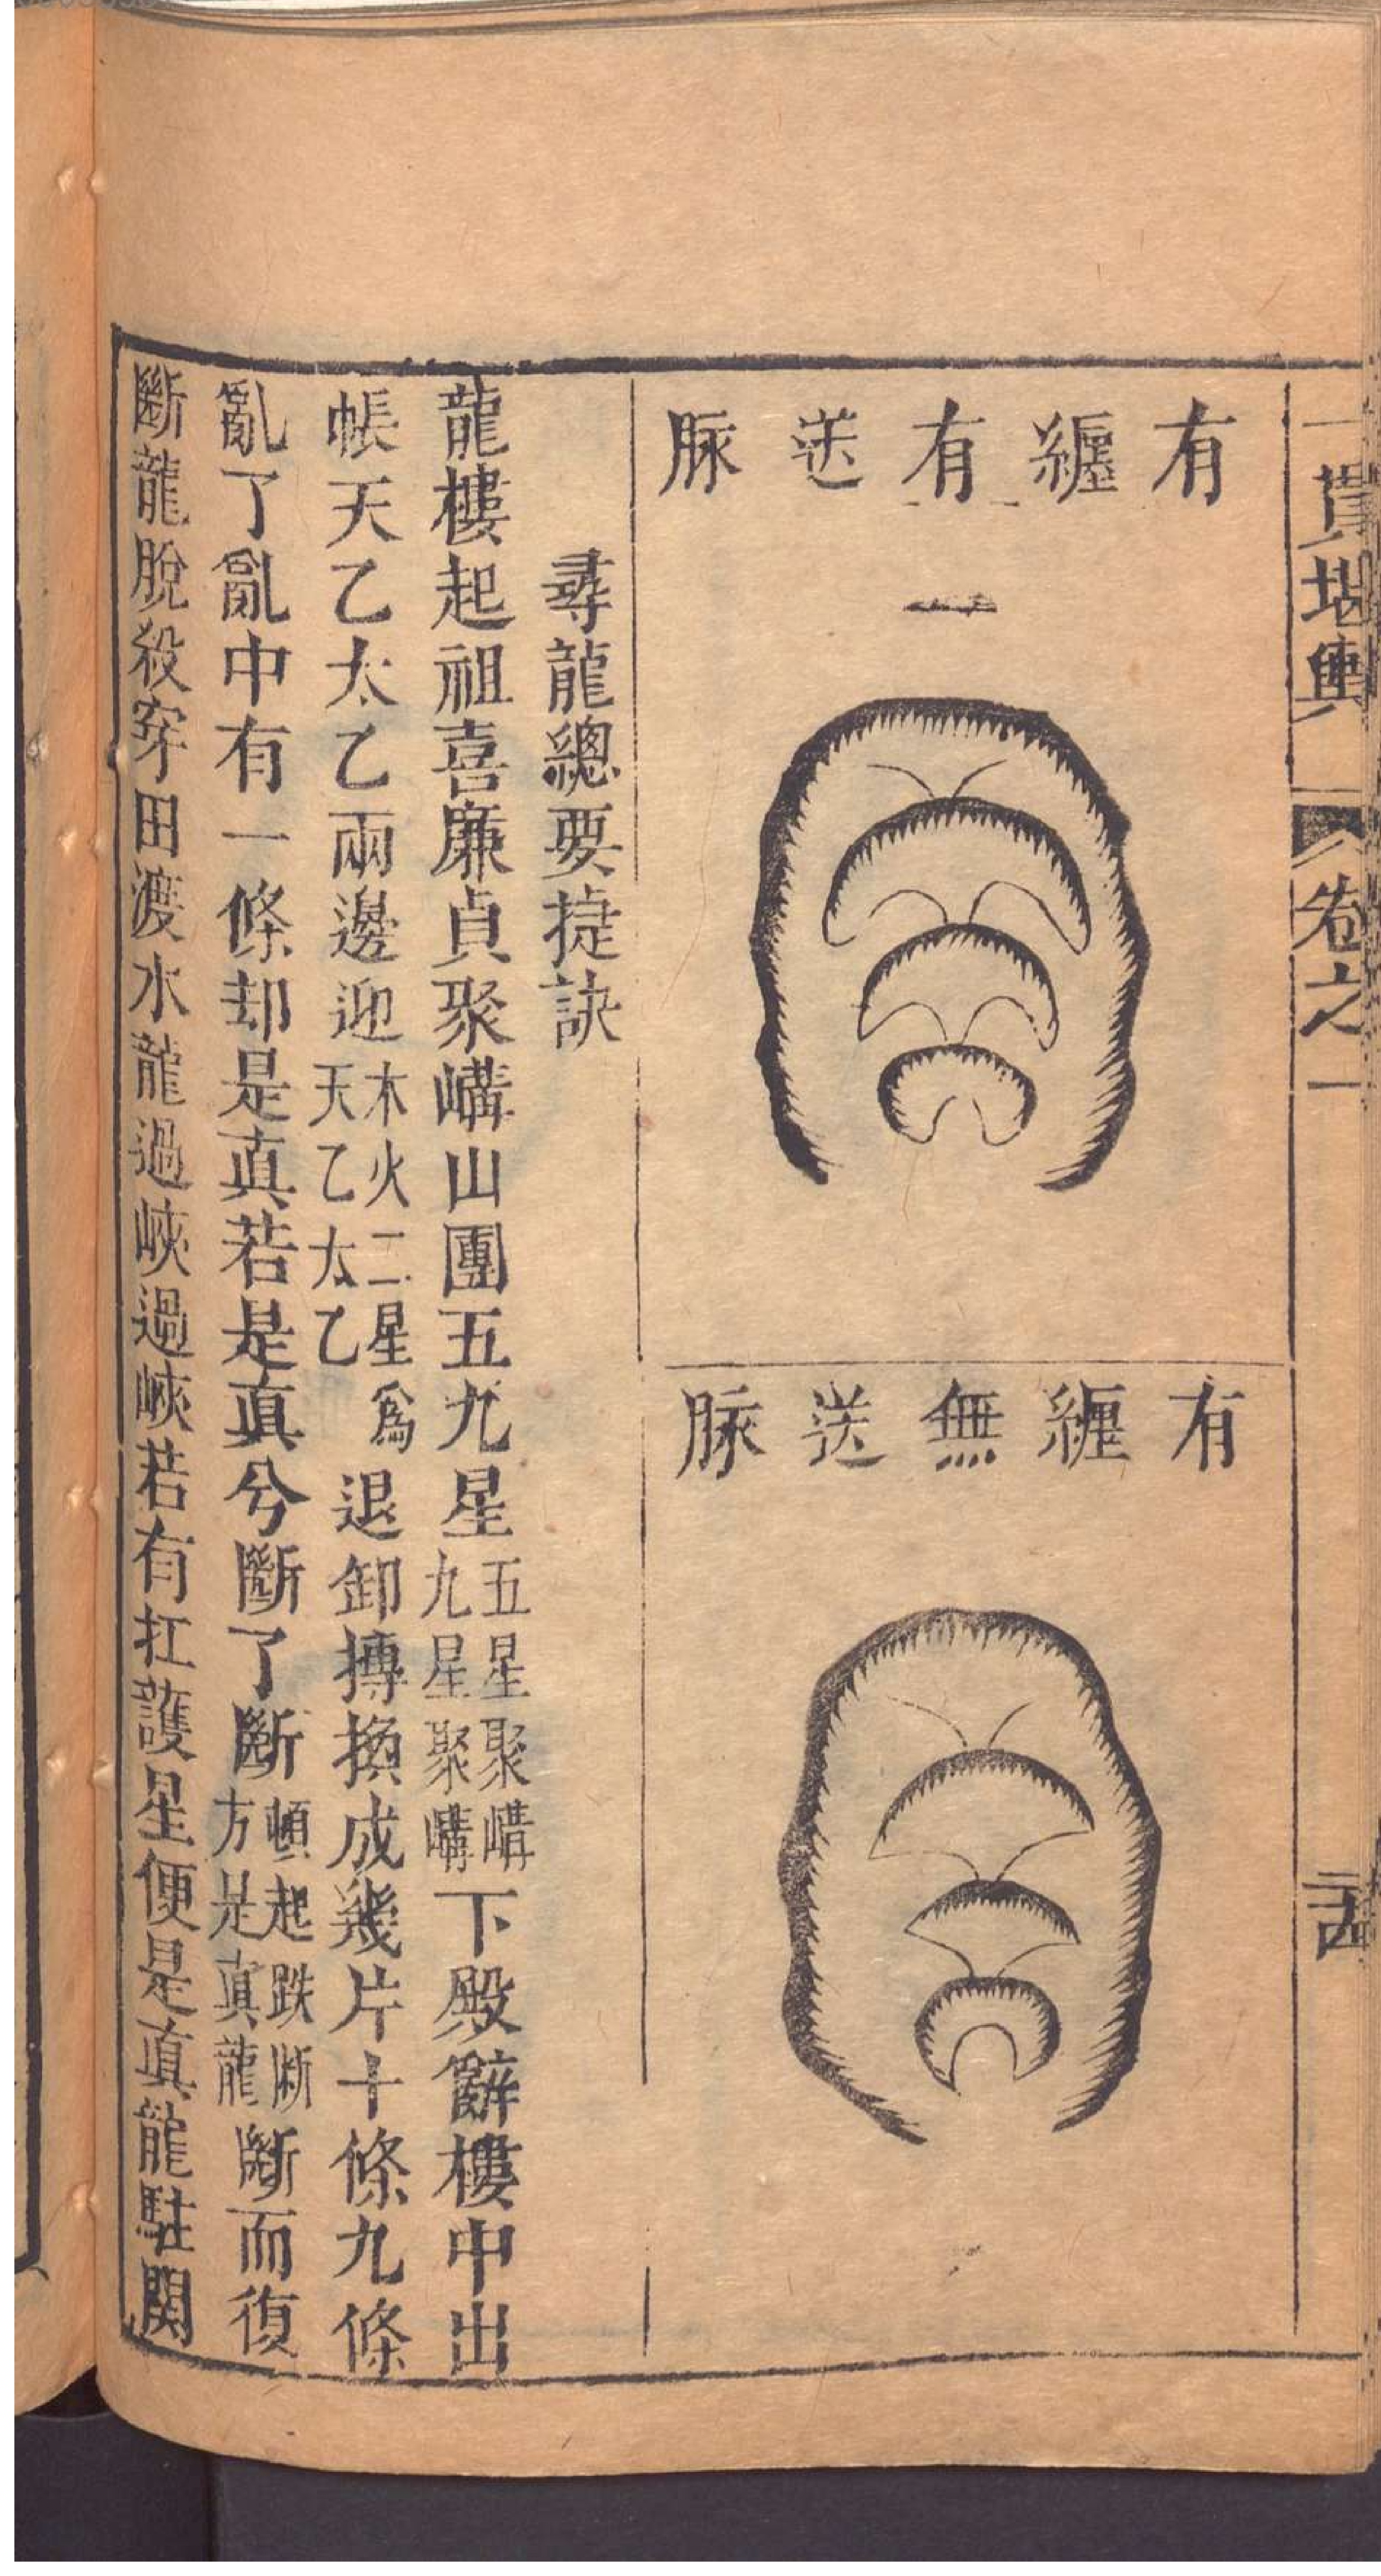 一貫堪輿 卷之一 二十四
有纏有送脉
有纏無送脉
尋龍總要捷訣
龍樓起祖喜廉貞聚嶹山團五九星五星聚嶹九星聚嶹下殿辭樓中出
帳天乙太乙兩邊迎木火二星爲天乙太乙退卸摶換成幾片十條九條
亂了亂中有一條却是真若是真兮斷了斷頓起跌断方是真龍斷而復
斷龍脫殺穿田渡水龍過峽過峽若有扛護星便是真龍駐関